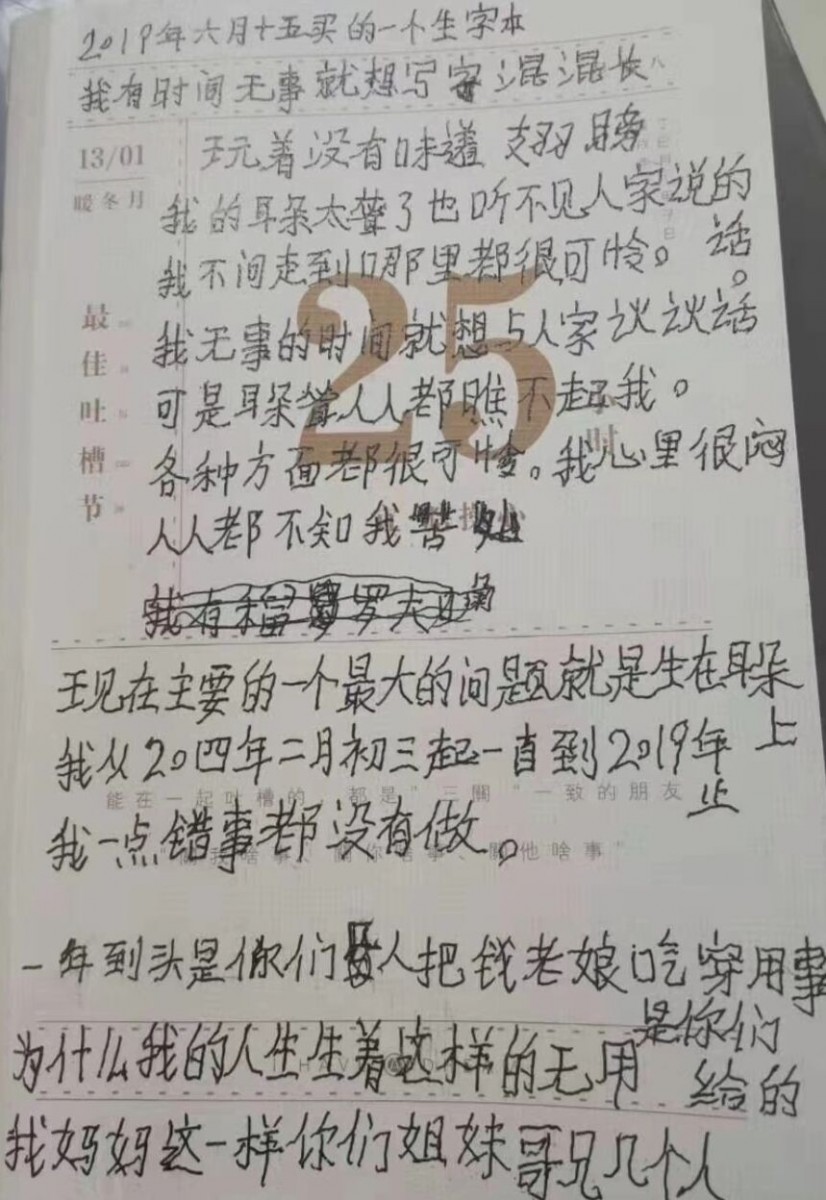 2019年六月十五买的一个生字本
我有时间无事就想写字混混长
13/01
暖冬月
玩着没有味道
我的耳朵太聋了也听不见人家说的话。
我不问走到哪里都很可怜。
25
小时
最佳吐槽节
我无事的时间就想与人家谈谈话
可是耳朵聋人人都瞧不起我。
各种方面都很可怜。我心里很闷
人人都不知我苦处
现在主要的一个最大的问题就是生在耳朵上
我从20四年二月初三起一直到2019年止
能在一起吐槽的 都是“三關”一致的朋友
我一点错事都没有做。
關你啥事、關他啥事”
一年到头是你们 人把钱老娘吃穿用事是你们给的
为什么我的人生生着这样的无用
我妈妈这一样你们姐妹哥兄几个人